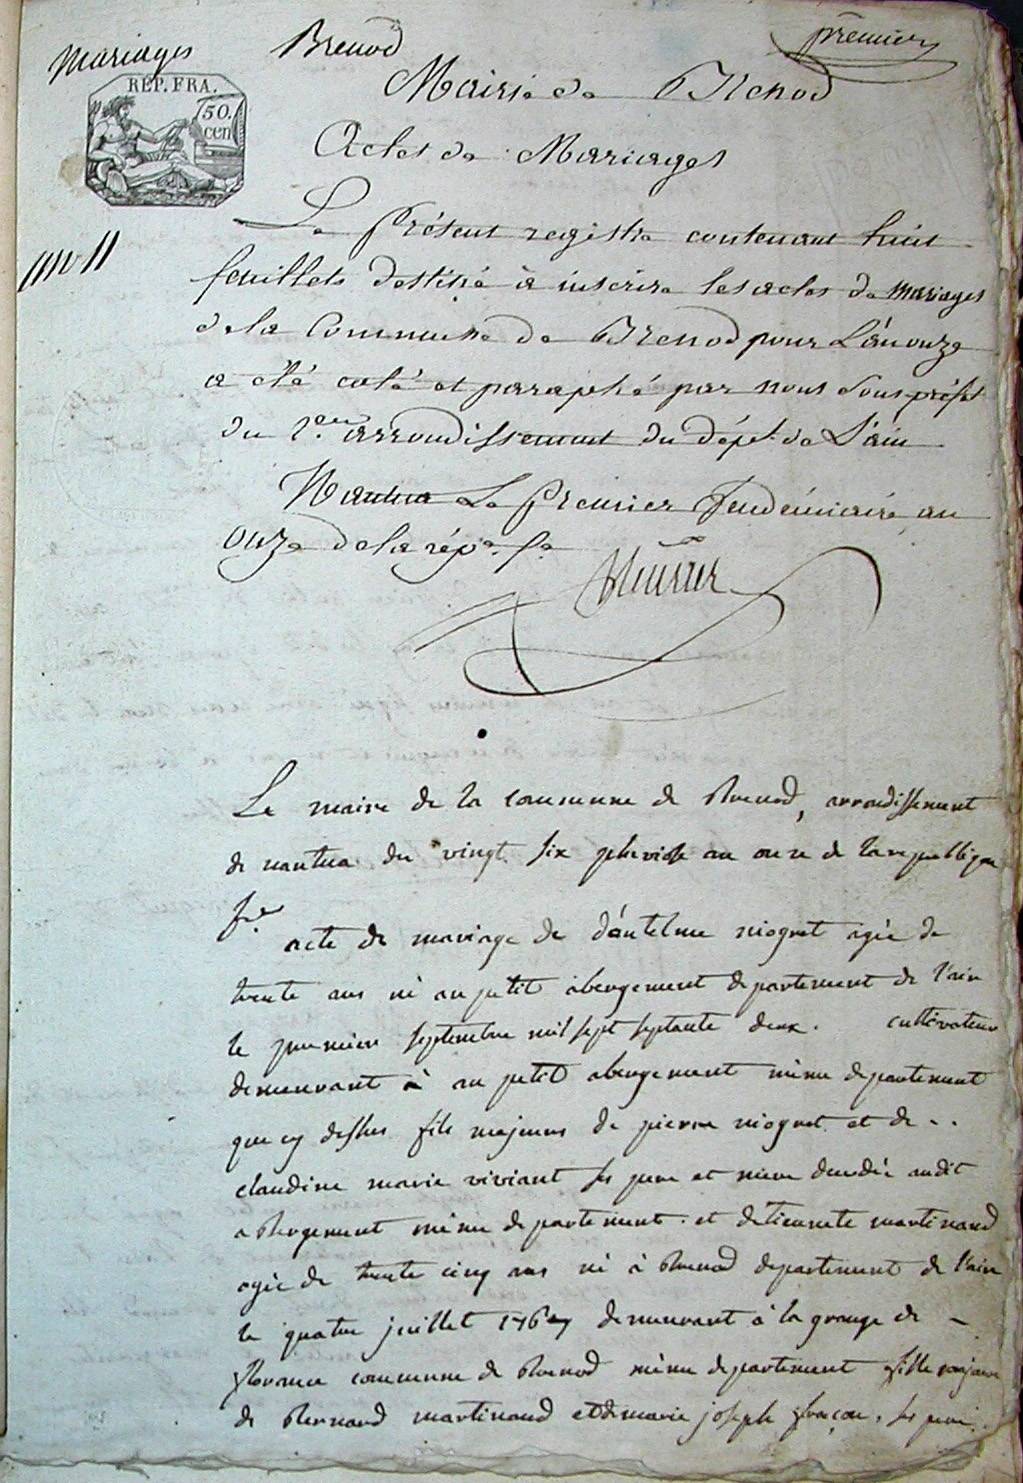 Mariages
Brenod
premier
REP. FRA.
50.
cen
Mairie de Brenod
Actes de Mariages
Le Présent registre contenant huit
feuillets destiné à inscrire les actes de mariages
de la Commune de Brenod pour L'an onze
a été coté et paraphé par nous Sous préfet
du 2.e arrondissement du dépt. de L'ain
Nantua Le Premier Vendémiaire an
onze de la rép.e f.e
Le maire de la commune de Brenod, arrondissement
de nantua du vingt six pluviose an onze de la republique
f.e
acte de mariage de d'antelme niogret agée de
trente ans né au petit abergement departement de l'ain
le premier septembre mil sept septante deux. cultivateur
demeurant à au petit abergement même departement
que cy dessus fils majeur de pierre niogret et de ..
claudine marie viviant ses pere et mere audit
abergement même departement. et detiennete martinand
agée de trente cinq ans né à Brenod departement de l'ain
le quatre juillet 1767 demeurant à la grange de -
commune de Brenod même departement fille majeure
de Bernard martinand et de marie joseph ses pere